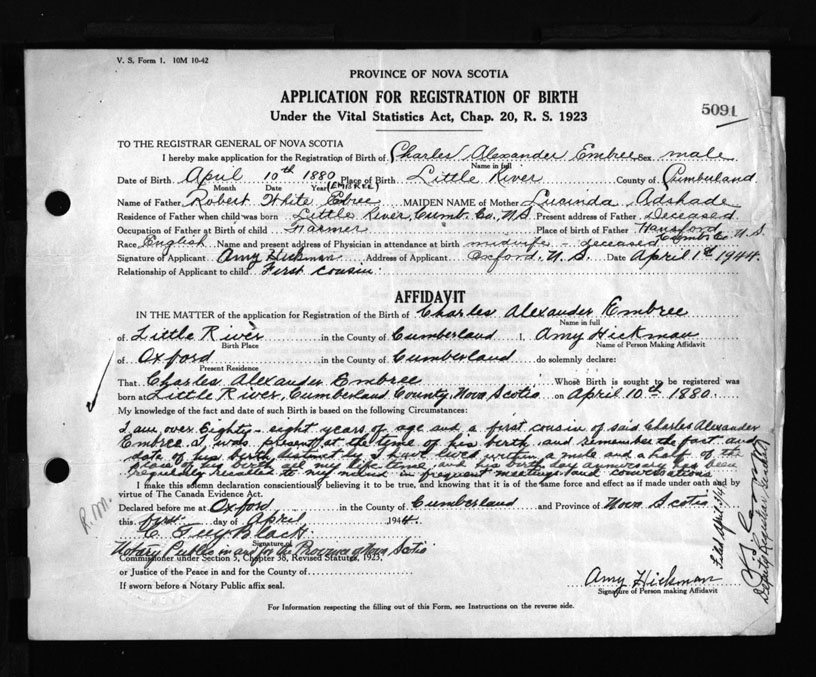 V. S. Form 1. 10M 10-42
PROVINCE OF NOVA SCOTIA
APPLICATION FOR REGISTRATION OF BIRTH
5091
Under the Vital Statistics Act, Chap. 20, R. S. 1923
TO THE REGISTRAR GENERAL OF NOVA SCOTIA
I hereby make application for the Registration of Birth of Charles Alexander Embree Sex male
Name in full
Date of Birth April 10th 1880 Place of Birth Little River County of Cumberland
Month Date Year (EMBREE)
Name of Father Robert White Ebree MAIDEN NAME of Mother Lusinda Adshade
Residence of Father when child was born Little River, Cumb. Co., N.S. Present address of Father Deceased
Occupation of Father at Birth of child Farmer Place of birth of Father Hansford Cumb. Co N.S.
Race English Name and present address of Physician in attendance at birth midwife - deceased
Signature of Applicant Amy Hickman Address of Applicant Oxford, N.S. Date April 1st 1944
Relationship of Applicant to child First cousin
AFFIDAVIT
IN THE MATTER of the application for Registration of the Birth of Charles Alexander Embree
Name in full
of Little River in the County of Cumberland I, Amy Hickman
Birth Place Name of Person Making Affidavit
of Oxford in the County of Cumberland do solemnly declare:
Present Residence
That Charles Alexander Embree Whose Birth is sought to be registered was
born at Little River, Cumberland County, Nova Scotia on April 10th 1880.
My knowledge of the fact and date of such Birth is based on the following Circumstances:
I am over Eighty-eight years of age and a first cousin of said Charles Alexander
Embree. I was present at the time of his birth and remember the fact and
date of his birth distinctly. I have lived within a mile and a half of the
place of his birth all my life time, and his birth day has been
frequently recalled to my mind in frequent meetings and conversations
I make this solemn declaration conscientiously believing it to be true, and knowing that it is of the same force and effect as if made under oath and by
virtue of The Canada Evidence Act.
R.M.
Declared before me at Oxford in the County of Cumberland and Province of Nova Scotia
this first day of April 1944.
Black
Signature of
Notary Public in and for the Province of Nova Scotia
Commissioner under Section 5, Chapter 38, Revised Statutes, 1923,
or Justice of the Peace in and for the County of
If sworn before a Notary Public affix seal.
Amy Hickman
Signature of Person making Affidavit
For Information respecting the filling out of this Form, see Instructions on the reverse side.
Deputy Registrar General